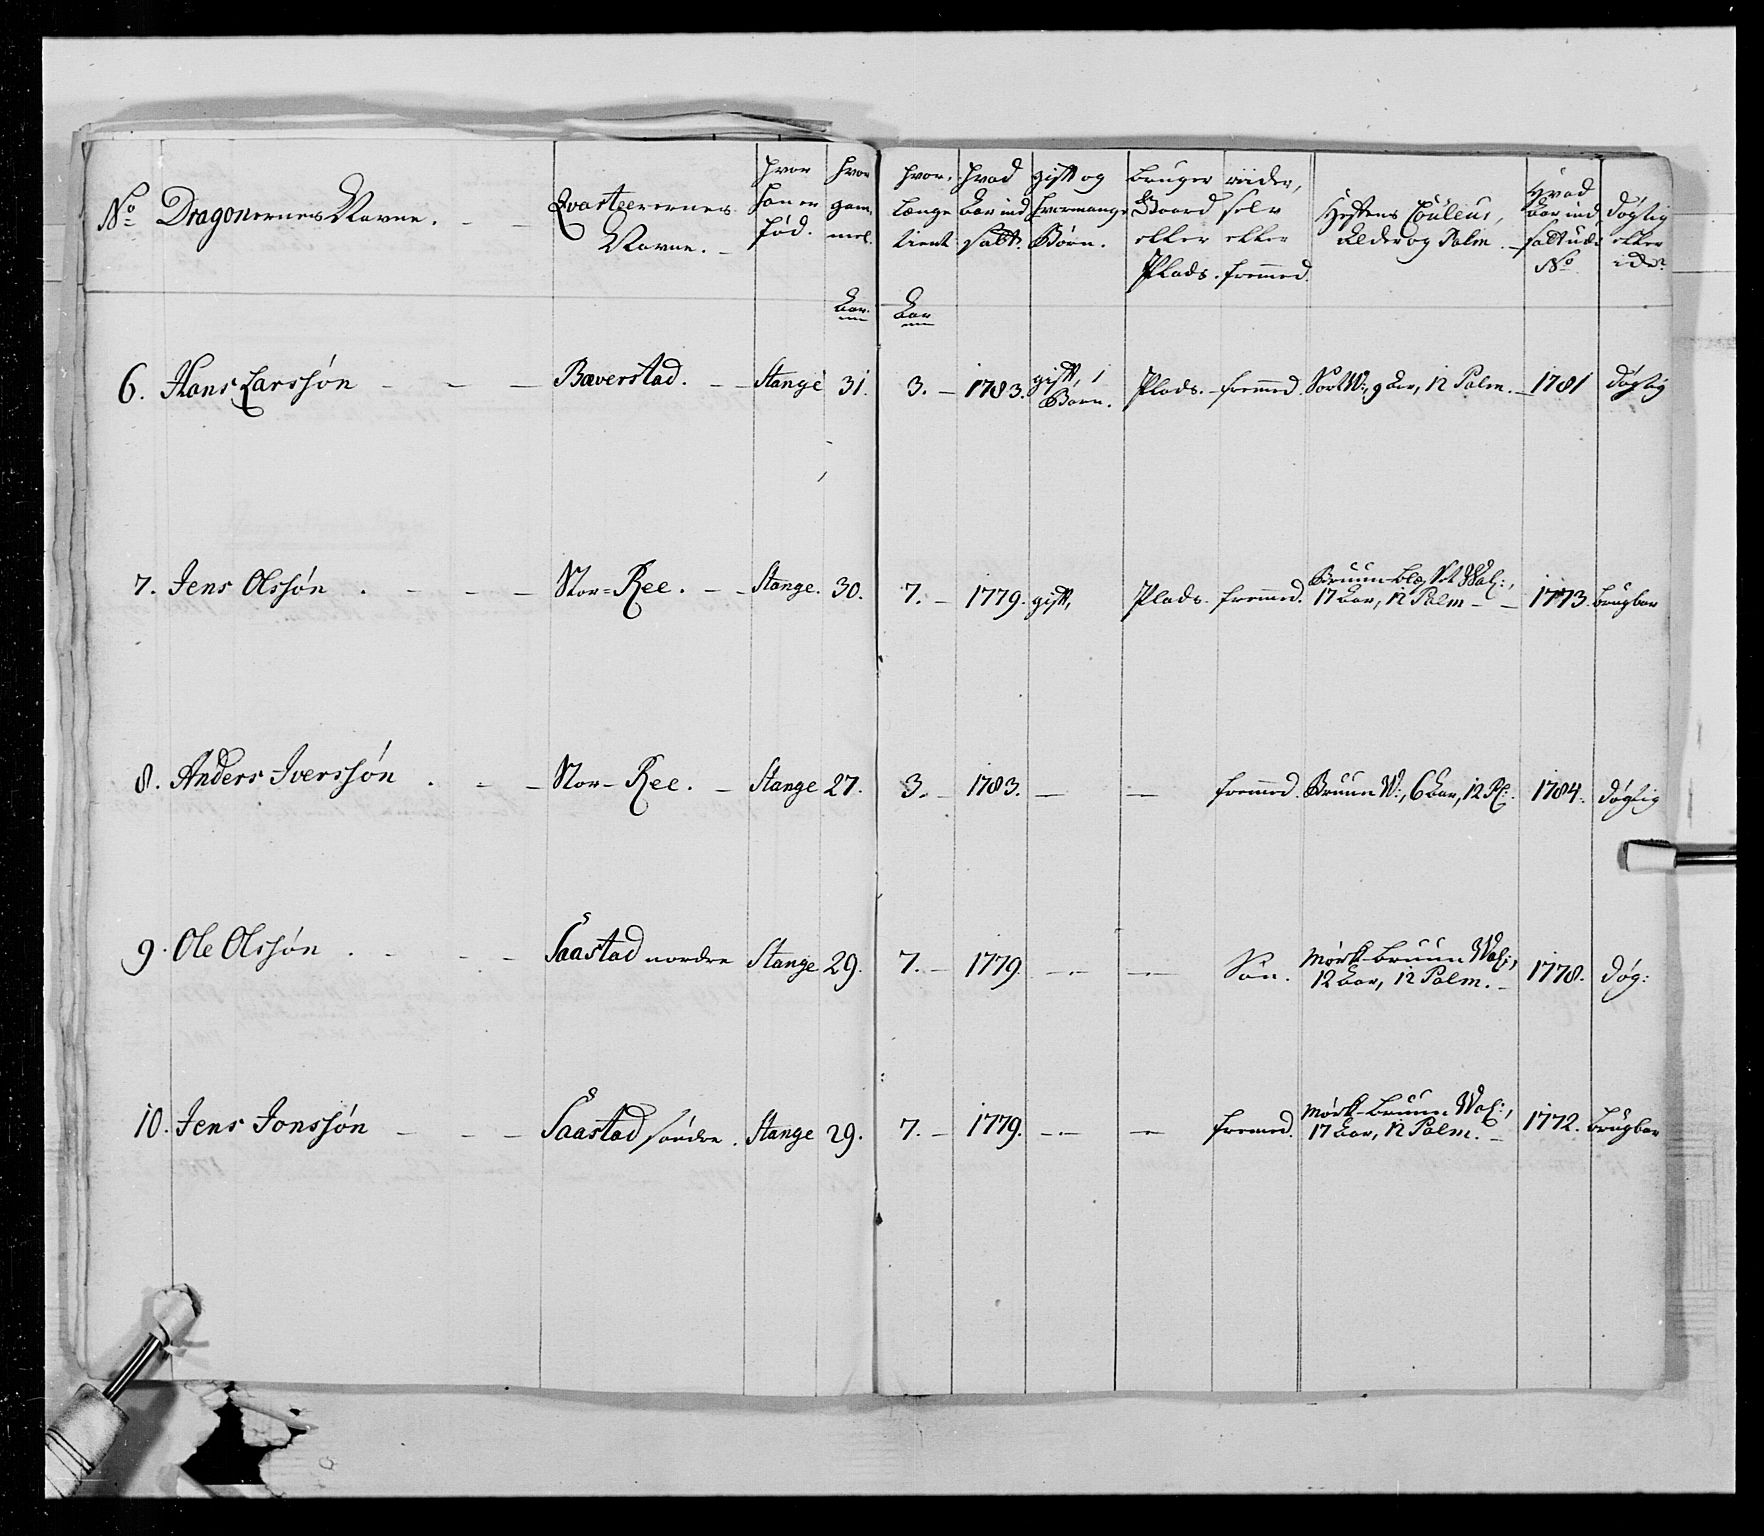 No Dragonernes Navne. Qvarteerernes Navne. hvor han er fød. hvor gam̄el. hvor længe tient hvad Aar ind satt. gift og hvormange Børn. bruger Gaard eller Plads. riider, selv eller frem̄ed. Hestens Couleur, Alder og Palm. Hvad Aar ind satt ud: No døgtig eller ide?
Aar. Aar
6. Hans Larssøn - - - Bæverstad. - - Stange 31. 3. - 1783. gift, 1 Barn. Plads. - frem̄ed. Sort W:, 9 Aar, 12 Palm. - 1781 døgtig
7. Jens Olssøn . - - - Stor=Ree. - - Stange. 30. 7. - 1779. gift, Plads. frem̄ed. Bruun-Blæs. Val:, 17 Aar, 12 Palm - - 1773. brugbar
8. Anders Iverssøn . - - Stor-Ree. - Stange 27. 3. - 1783. - - frem̄ed. Bruun W:, 6 Aar, 12 Pl:. 1784. døgtig
9. Ole Olssøn . - - - Saastad nordre Stange 29. 7. - 1779. - - - Søn. mørk bruun Val:, 12 Aar, 12 Palm. - 1778. døg:
10. Jens Jonssøn - - - Saastad søndre. Stange 29. 7. - 1779. - - - frem̄ed. mørk-bruun Val:, 17 Aar, 12 Palm. - 1772. brugbar